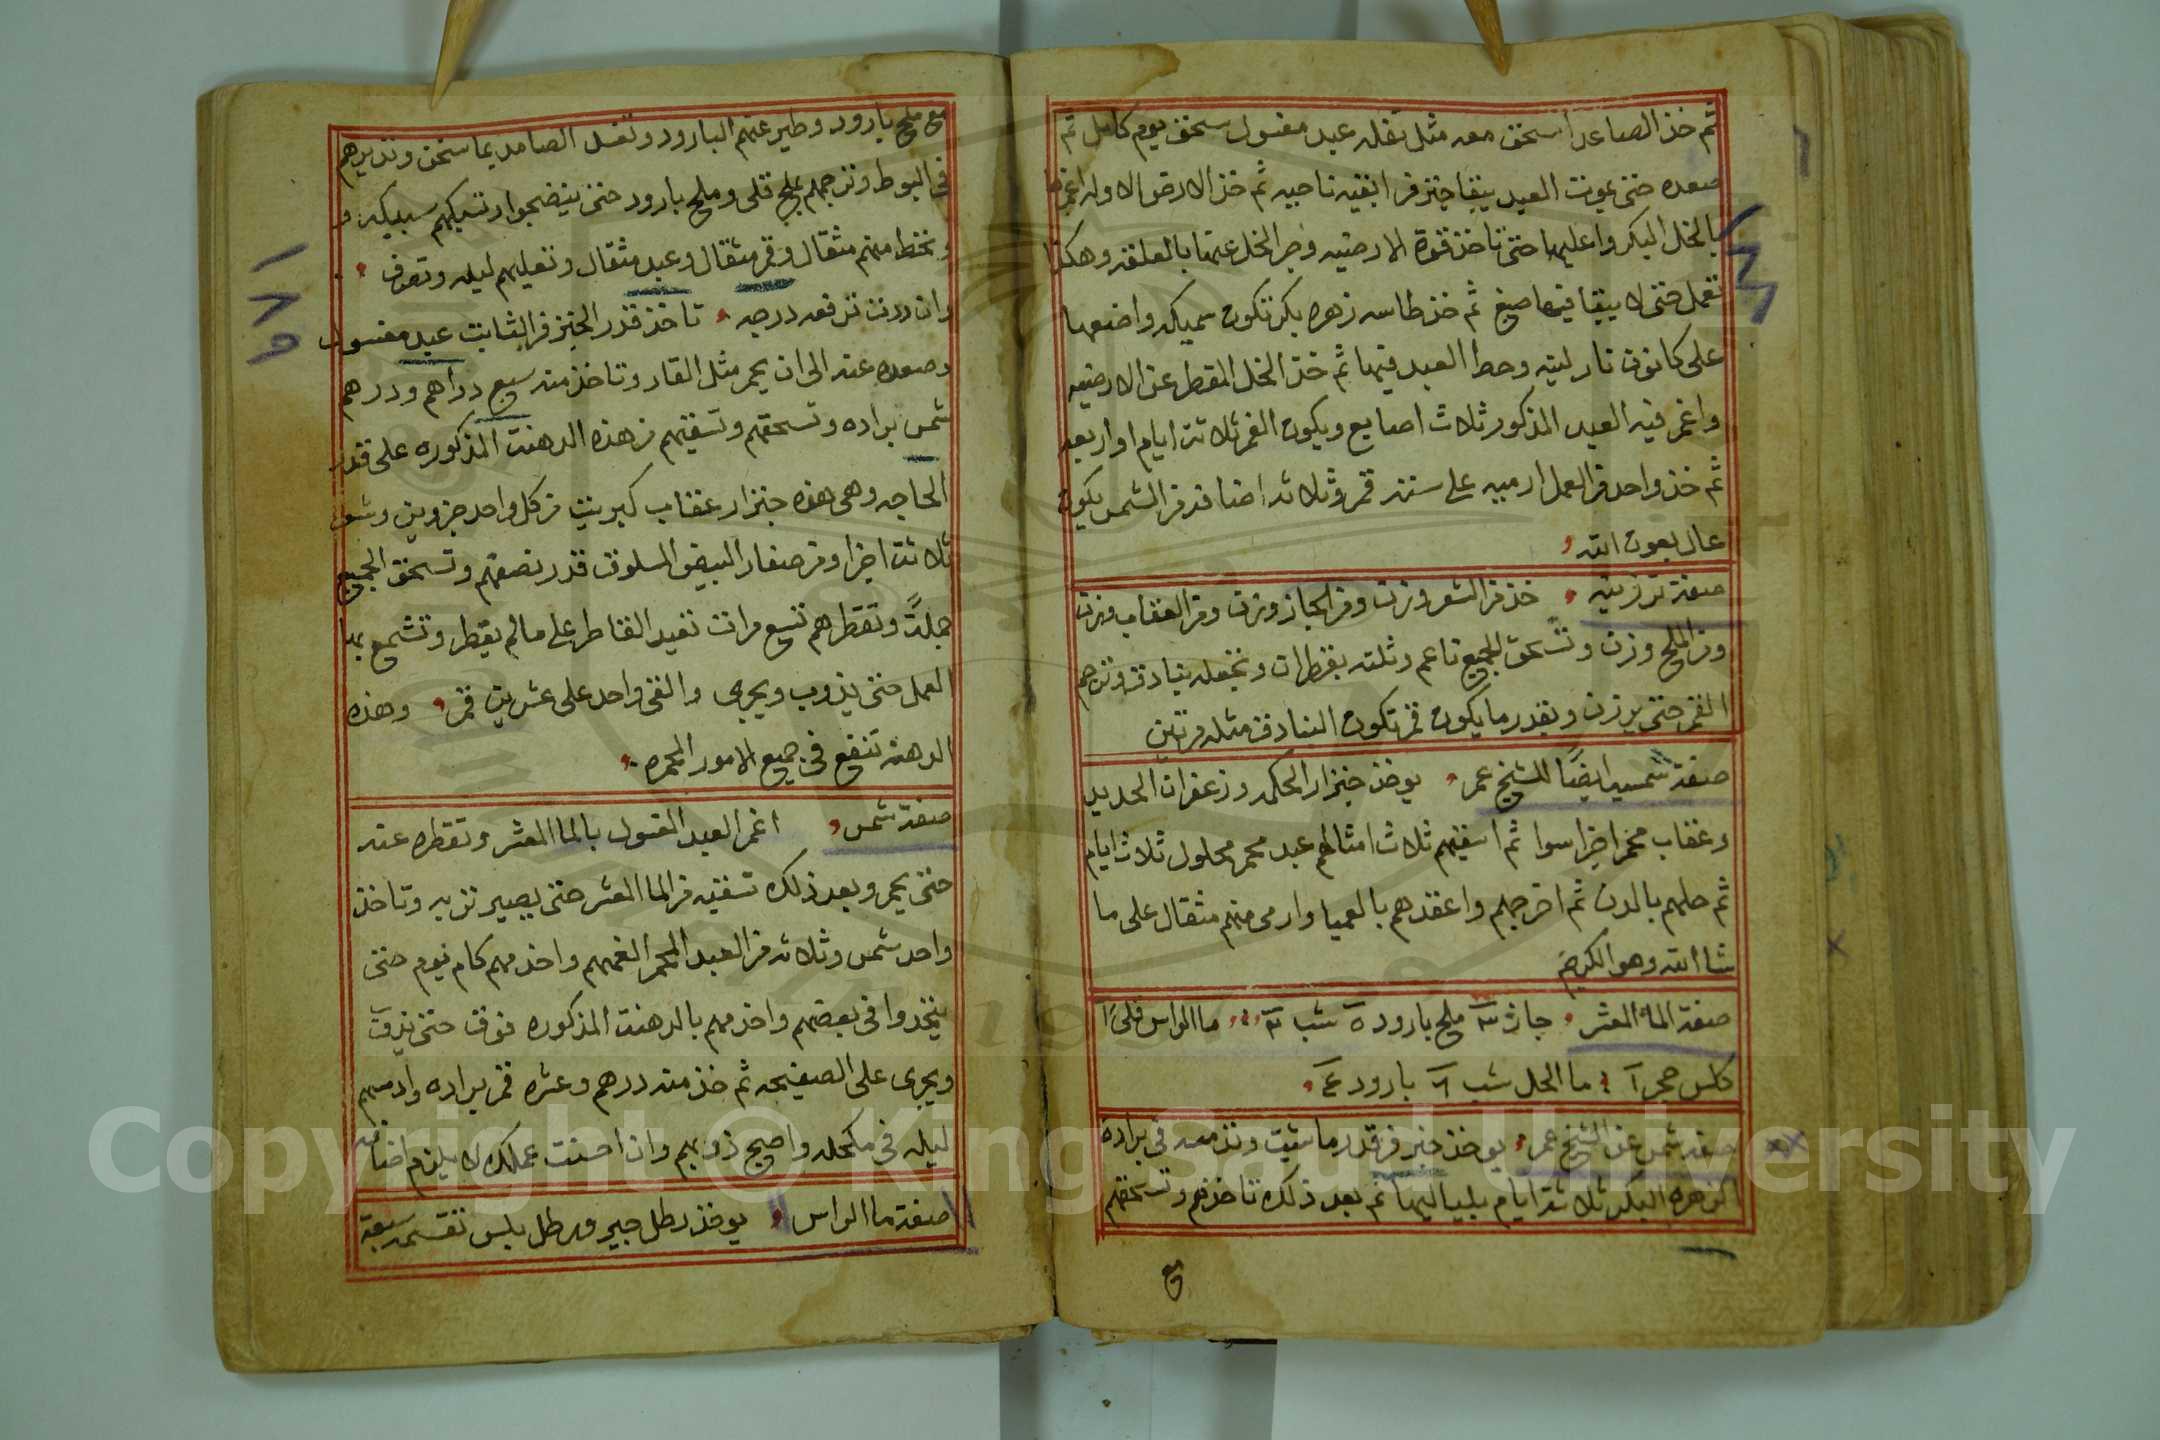 ثم خذ الصاعد اسحق معه مثل ثقله عبد مغسول سحق يوم كامل ثم
صعده حتى يموت العبد يبقا جنزفر ابقيه ناحيه ثم خذ الارض الاوله اغمرها
بالخل البكر واعليها حتى تاخذ قوة الارضيه وجر الخل عنها بالعلقه وهكذا
تعمل حتى لا يبقا فيها صبغ ثم خذ طاسه زهره بكر تكون سميكه واضعها
على كانون نار لينه وحط العبد فيها ثم خذ الخل المقطر عن الارضيه
واغمر فيه العبد المذكور ثلاث اصابع ويكون الغمر ثلاثة ايام او اربعه
ثم خذ واحد من العمل ارميه على ستة قمر وثلاثه اضافه من الشمس يكون
عال بعون الله
صفة ترزينه خذ من الشعر وزن ومن الجاز وزن ومن العقاب وزن
ومن الملح وزن وتسحق الجميع ناعم وتلته بقطران وتجعله بنادق وترجم
القمر حتى يرزن وبقدر ما يكون قمر تكون البنادق مثله مرتين
صفة شمسيه ايضًا للشيخ عمر يوخذ جنزار الحكمه وزعفران الحديد
وعقاب محمر اجزا سوا ثم اسقيهم ثلاث امثالهم عبد محمر محلول ثلاث ايام
ثم حلهم بالدن ثم اخرجهم واعقدهم بالعميا وارمى منهم مثقال على ما
شا الله وهو الكريم
صفة الماء المعشر جاز ٣ ملح بارود ٥ شب ٣ ما الراس قلى ١
كلس حجر ١ ما الحل شب ٦ بارود ٤
صفه شمس عن الشيخ عمر يوخذ جنزفر قدر ما شيت وتزمعه فى براده
الزهره البكر ثلاثة ايام بلياليها ثم بعد ذلك تاخذهم وتسحقهم
مع
مع ملح بارود وطير عنهم البارود وتغسل الصامد بما سخن وتديرهم
فى البوط وترجمهم بملح قلى وملح بارود حتى ينضجوا وتسبكهم سبيكه و
وتحط منهم مثقال وقمر مثقال وعبد مثقال وتعليهم ليله وتصرف
وان ردت ترفعه درجه تاخذ قدر الجنزفر الثابت عبد مغسول
وصعده عنه الى ان يحمر مثل القار وتاخذ منه سبع دراهم ودرهم
شمس براده وتسحقهم وتسقيهم من هذه الدهنة المذكوره على قدر
الحاجه وهى هذه جنزار عقاب كبريت من كل واحد جزوين وشعر
ثلاثة اجزا ومن صفار البيض المسلوق قدر نصفهم وتسحق الجميع
جملةً وتقطرهم تسع مرات تعيد القاطر على ما لم يقطر وتشمع بها
العمل حتى يذوب ويجرى والقى واحد على عشرين قمر وهذه
الدهنه تنفع فى جميع الامور المحمره
صفة شمس اغمر العبد المغسول بالما المعشر وتقطره عنه
حتى يحمر وبعد ذلك تسقيه من الما المعشر حتى يصير تربه وتاخذ
واحد شمس وثلاثه من العبد المحمر الغمهم واخدمهم كام يوم حتى
يتخدوا فى بعضهم واخدمهم بالدهنة المذكوره فوق حتى يذوب
ويجرى على الصفيحه ثم خذ منه درهم وعشره قمر براده وادمسهم
ليله فى مكحله واصبح ذوبهم وان احسنت عملك لا يلزم اضافه
صفة ما الراس يوخذ رطل جير ورطل بلس تقسمه سبعة
١٧٩
Copyright © King Saud University